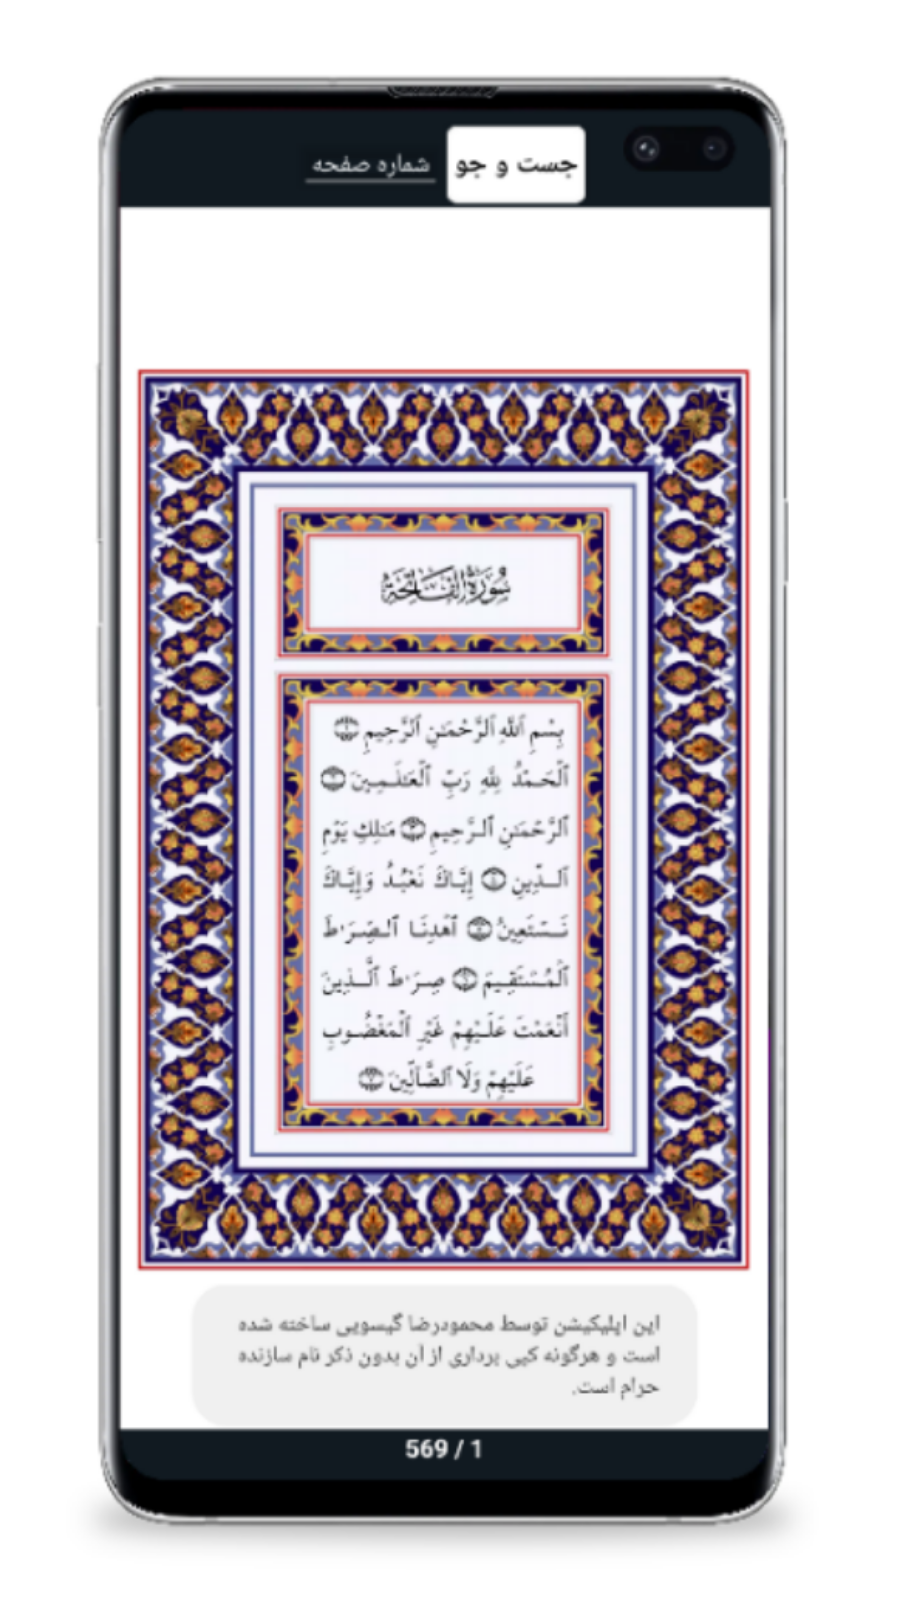 جست و جو شماره صفحه
سُورَةُ الفَاتِحَةِ
بِسْمِ ٱللَّهِ ٱلرَّحْمَٰنِ ٱلرَّحِيمِ ١
ٱلْحَمْدُ لِلَّهِ رَبِّ ٱلْعَٰلَمِينَ ٢
ٱلرَّحْمَٰنِ ٱلرَّحِيمِ ٣ مَٰلِكِ يَوْمِ
ٱلدِّينِ ٤ إِيَّاكَ نَعْبُدُ وَإِيَّاكَ
نَسْتَعِينُ ٥ ٱهْدِنَا ٱلصِّرَٰطَ
ٱلْمُسْتَقِيمَ ٦ صِرَٰطَ ٱلَّذِينَ
أَنْعَمْتَ عَلَيْهِمْ غَيْرِ ٱلْمَغْضُوبِ
عَلَيْهِمْ وَلَا ٱلضَّآلِّينَ ٧
این اپلیکیشن توسط محمودرضا گیسویی ساخته شده
است و هرگونه کپی برداری از آن بدون ذکر نام سازنده
حرام است.
569 / 1